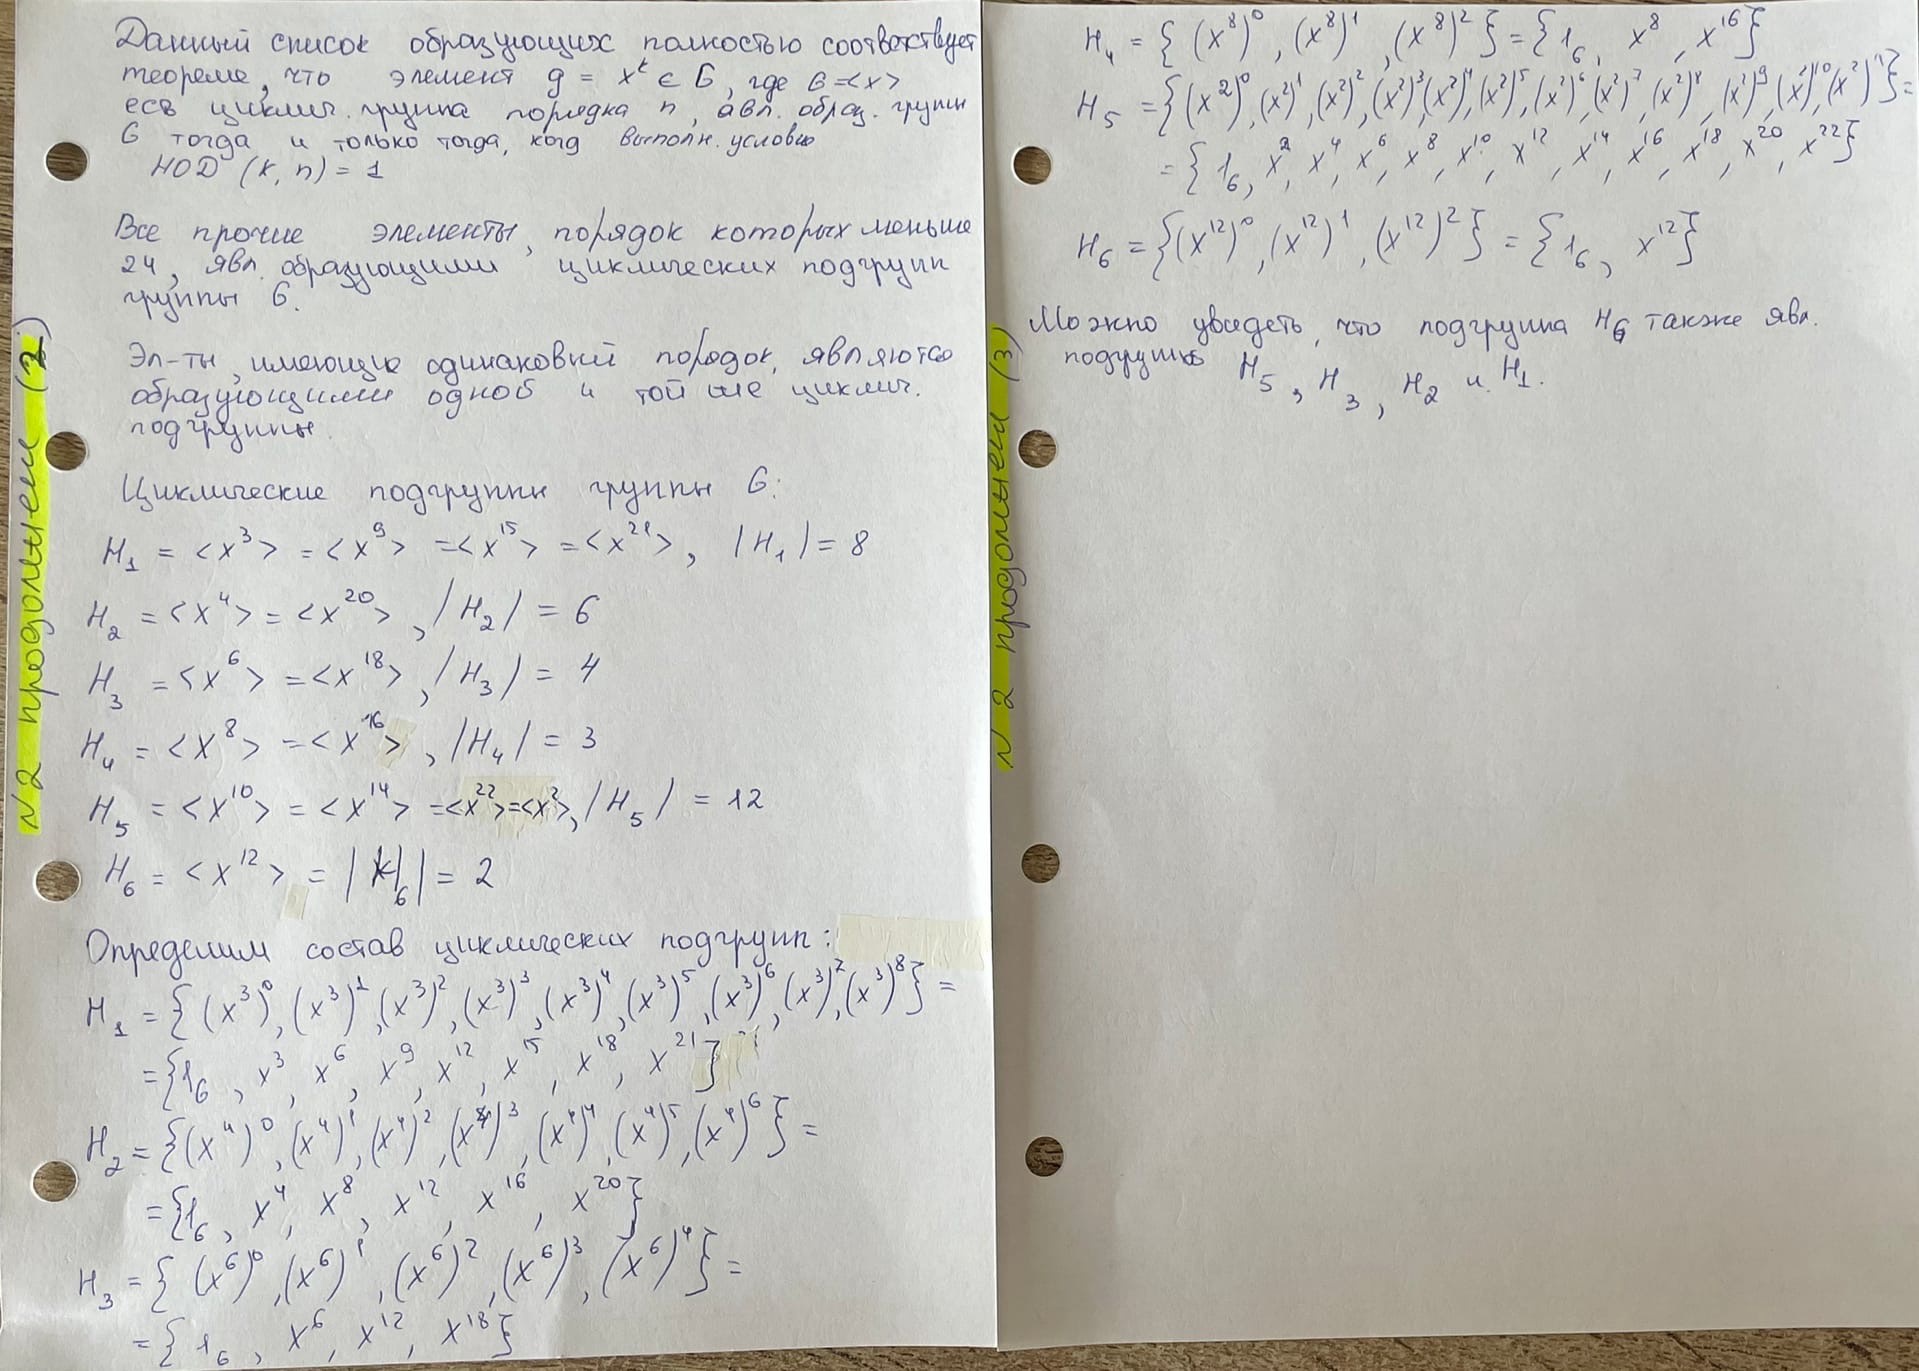 Данный список образующих полностью соответствует
теореме, что элемент g = x^k ∈ G, где G=<x>
есв циклич. группа порядка n, явл. образ. групп
G тогда и только тогда, когд выполн. условие
НОД (k, n) = 1
Все прочие элементы, порядок которых меньше
24, явл. образующими циклических подгрупп
группы G.
Эл-ты, имеющие одинаковый порядок, являются
образующими одной и той же циклич.
подгруппы.
Циклические подгруппы группы G:
H_1 = <x^3> = <x^9> = <x^15> = <x^21>, |H_1| = 8
H_2 = <x^4> = <x^20>, |H_2| = 6
H_3 = <x^6> = <x^18>, |H_3| = 4
H_4 = <x^8> = <x^16>, |H_4| = 3
H_5 = <x^10> = <x^14> = <x^22> = <x^2>, |H_5| = 12
H_6 = <x^12> = |H_6| = 2
Определим состав циклических подгрупп:
H_1 = {(x^3)^0, (x^3)^1, (x^3)^2, (x^3)^3, (x^3)^4, (x^3)^5, (x^3)^6, (x^3)^7, (x^3)^8} =
= {1_G, x^3, x^6, x^9, x^12, x^15, x^18, x^21}
H_2 = {(x^4)^0, (x^4)^1, (x^4)^2, (x^4)^3, (x^4)^4, (x^4)^5, (x^4)^6} =
= {1_G, x^4, x^8, x^12, x^16, x^20}
H_3 = {(x^6)^0, (x^6)^1, (x^6)^2, (x^6)^3, (x^6)^4} =
= {1_G, x^6, x^12, x^18}
№2 продолжени (2)
H_4 = {(x^8)^0, (x^8)^1, (x^8)^2} = {1_G, x^8, x^16}
H_5 = {(x^2)^0, (x^2)^1, (x^2)^2, (x^2)^3, (x^2)^4, (x^2)^5, (x^2)^6, (x^2)^7, (x^2)^8, (x^2)^9, (x^2)^10, (x^2)^11} =
= {1_G, x^2, x^4, x^6, x^8, x^10, x^12, x^14, x^16, x^18, x^20, x^22}
H_6 = {(x^12)^0, (x^12)^1, (x^12)^2} = {1_G, x^12}
Можно увидеть, что подгруппа H_6 также явл.
подгруппо H_5, H_3, H_2 и H_1.
№2 продолжени (3)